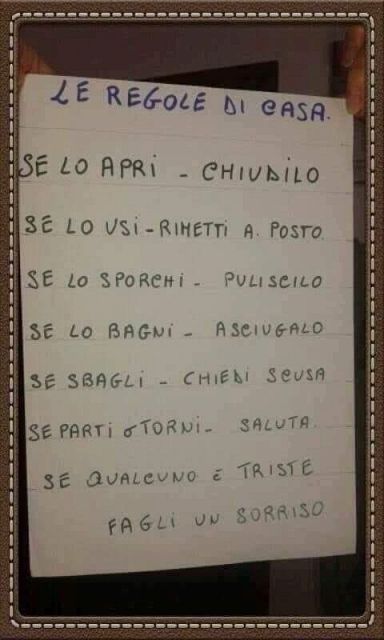 LE REGOLE DI CASA.
SE LO APRi - CHIUDILO
SE LO USi - RIMETTI A. POSTO.
SE LO SPORCHi - PULISCILO
SE LO BAGNi - ASCIUGALO
SE SBAGLi - CHIEDI SCUSA
SE PARTi o TORNi - SALUTA.
SE QUALCUNO È TRISTE
FAGLI UN SORRISO